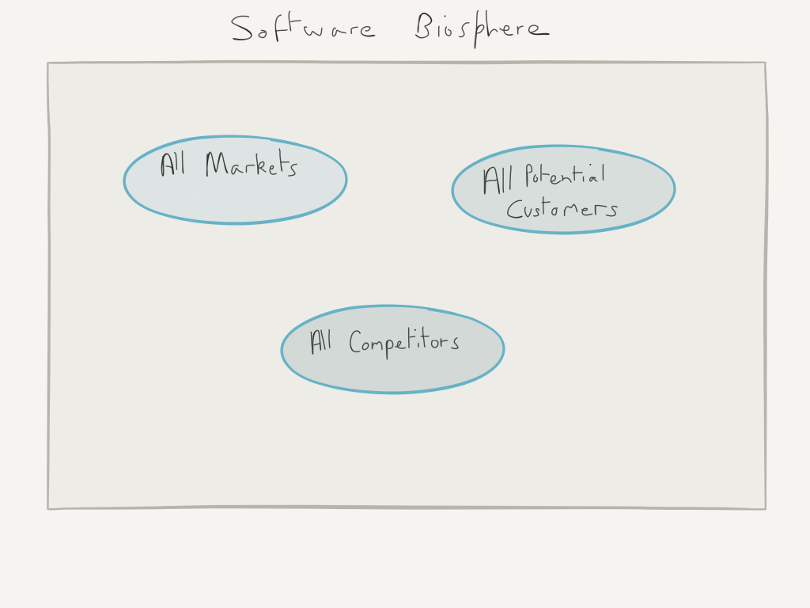 Software Biosphere
All Markets
All Potential
Customers
All Competitors